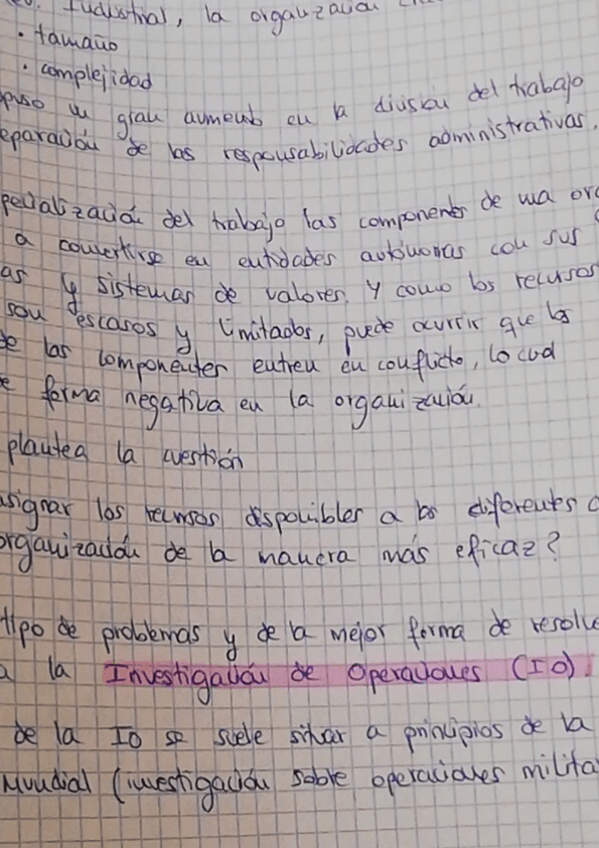 Industrial, la organización
· tamaño
· complejidad
puso un gran aumento en la división del trabajo
eparación de las responsabilidades administrativas.
pecialización del trabajo las componentes de una org
a convertirse en entidades autónomas con sus
as y sistemas de valores. Y como los recursos
son escasos y limitados, puede ocurrir que los
de las componentes entren en conflicto, lo cual
e forma negativa en la organización.
plantea la cuestión
asignar los recursos disponibles a los diferentes c
organización de la manera más eficaz?
tipo de problemas y de la mejor forma de resolve
a la Investigación de Operaciones (IO).
de la IO se suele situar a principios de la
Mundial (investigación sobre operaciones milita